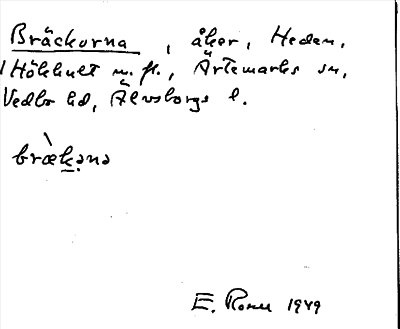 Bräckorna, åker, Heden,
Hökhult m. fl., Ärtemarks sn,
Vedbo hd, Älvsborgs l.
bræ̀kənə
E. 1949